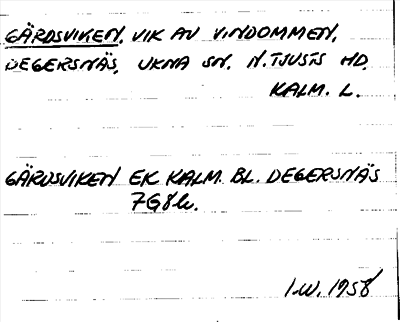 GÄRDSVIKEN, VIK AV VINDOMMEN,
DEGERSNÄS, UKNA SN. N. TJUSTS HD.
KALM. L.
GÄRDSVIKEN EK KALM. BL. DEGERSNÄS
7G8b.
I.W. 1958